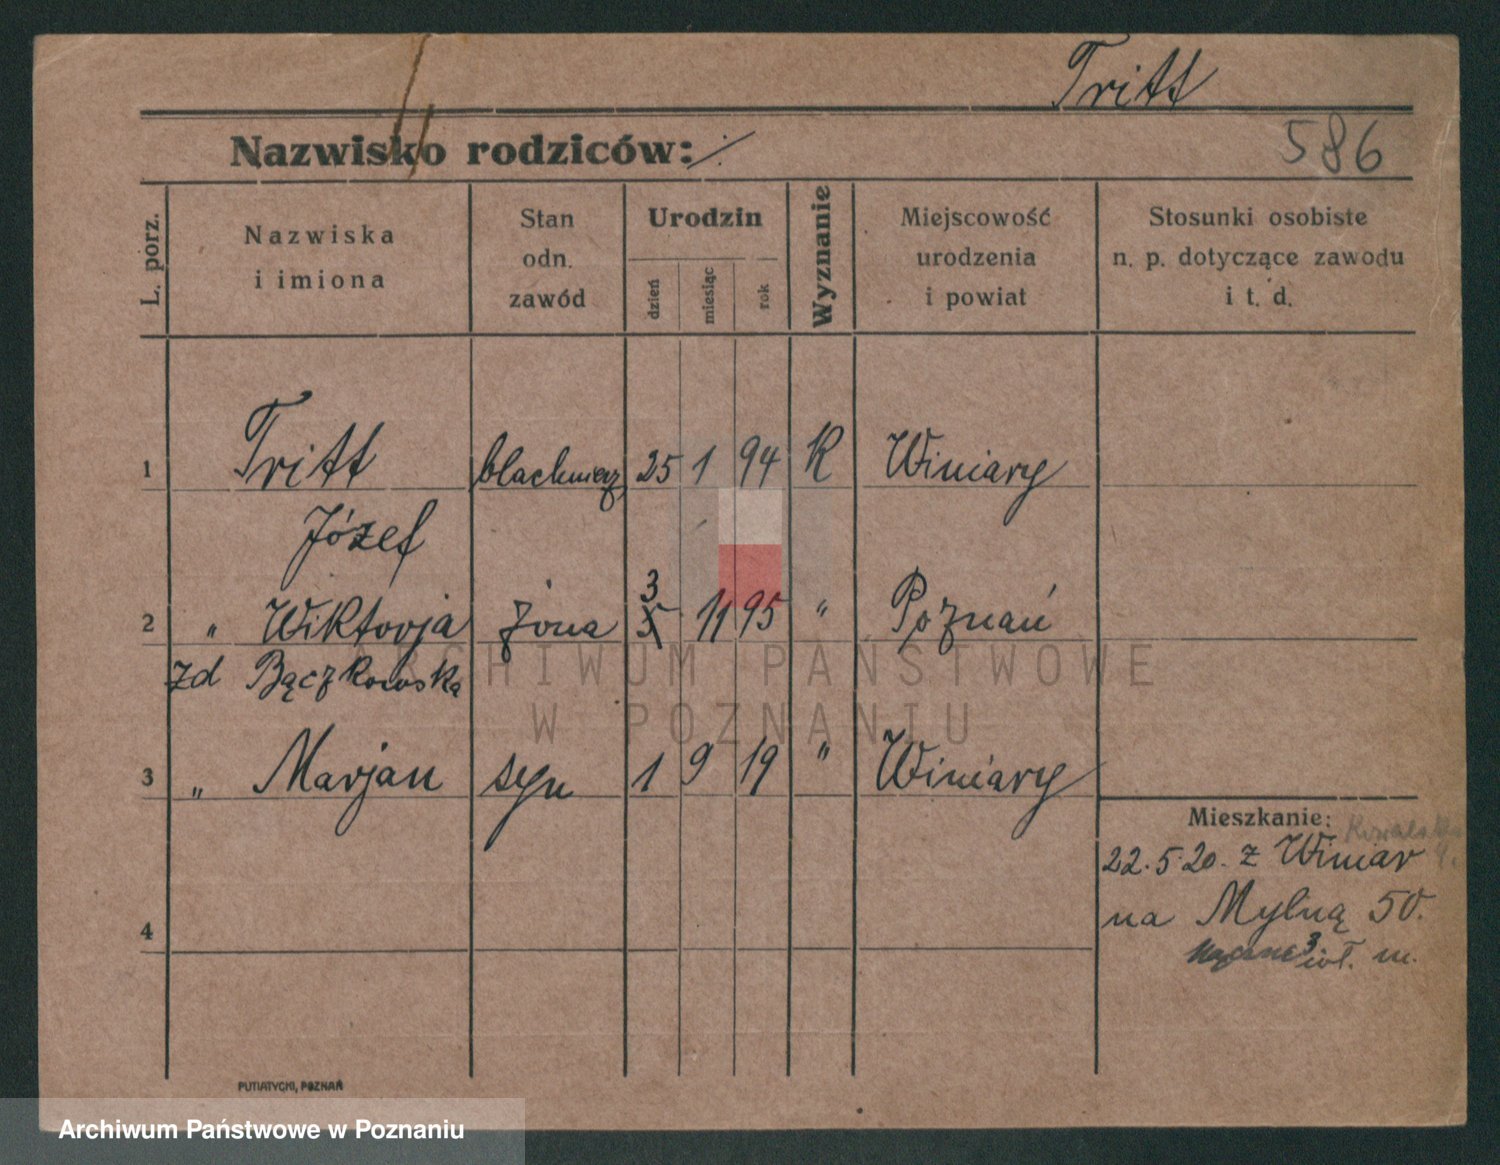 Tritt
Nazwisko rodziców: ./.
586
L. porz.
Nazwiska
i imiona
Stan
odn.
zawód
Urodzin
dzień
miesiąc
rok
Wyznanie
Miejscowość
urodzenia
i powiat
Stosunki osobiste
n. p. dotyczące zawodu
i t. d.
1 Tritt blachnierz 25 1 94 K Winiary
Józef
3
2 " Wiktorja żona 5 11 95 " Poznań
zd Bączkowska
3 " Marjan syn 1 9 19 " Winiary
4
Mieszkanie:
22.5.20. z Winiar
na Mylną 50.
3
m.
PUTIATYCKI, POZNAŃ
ARCHIWUM PAŃSTWOWE
W POZNANIU
Archiwum Państwowe w Poznaniu